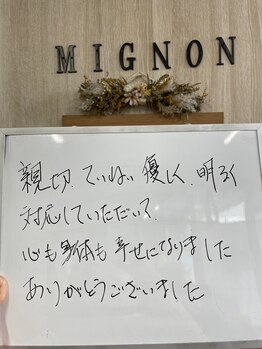 MIGNON
親切、ていねい 優しく、明るく
対応していただいて、
心も身体も幸せになりました
ありがとうございました